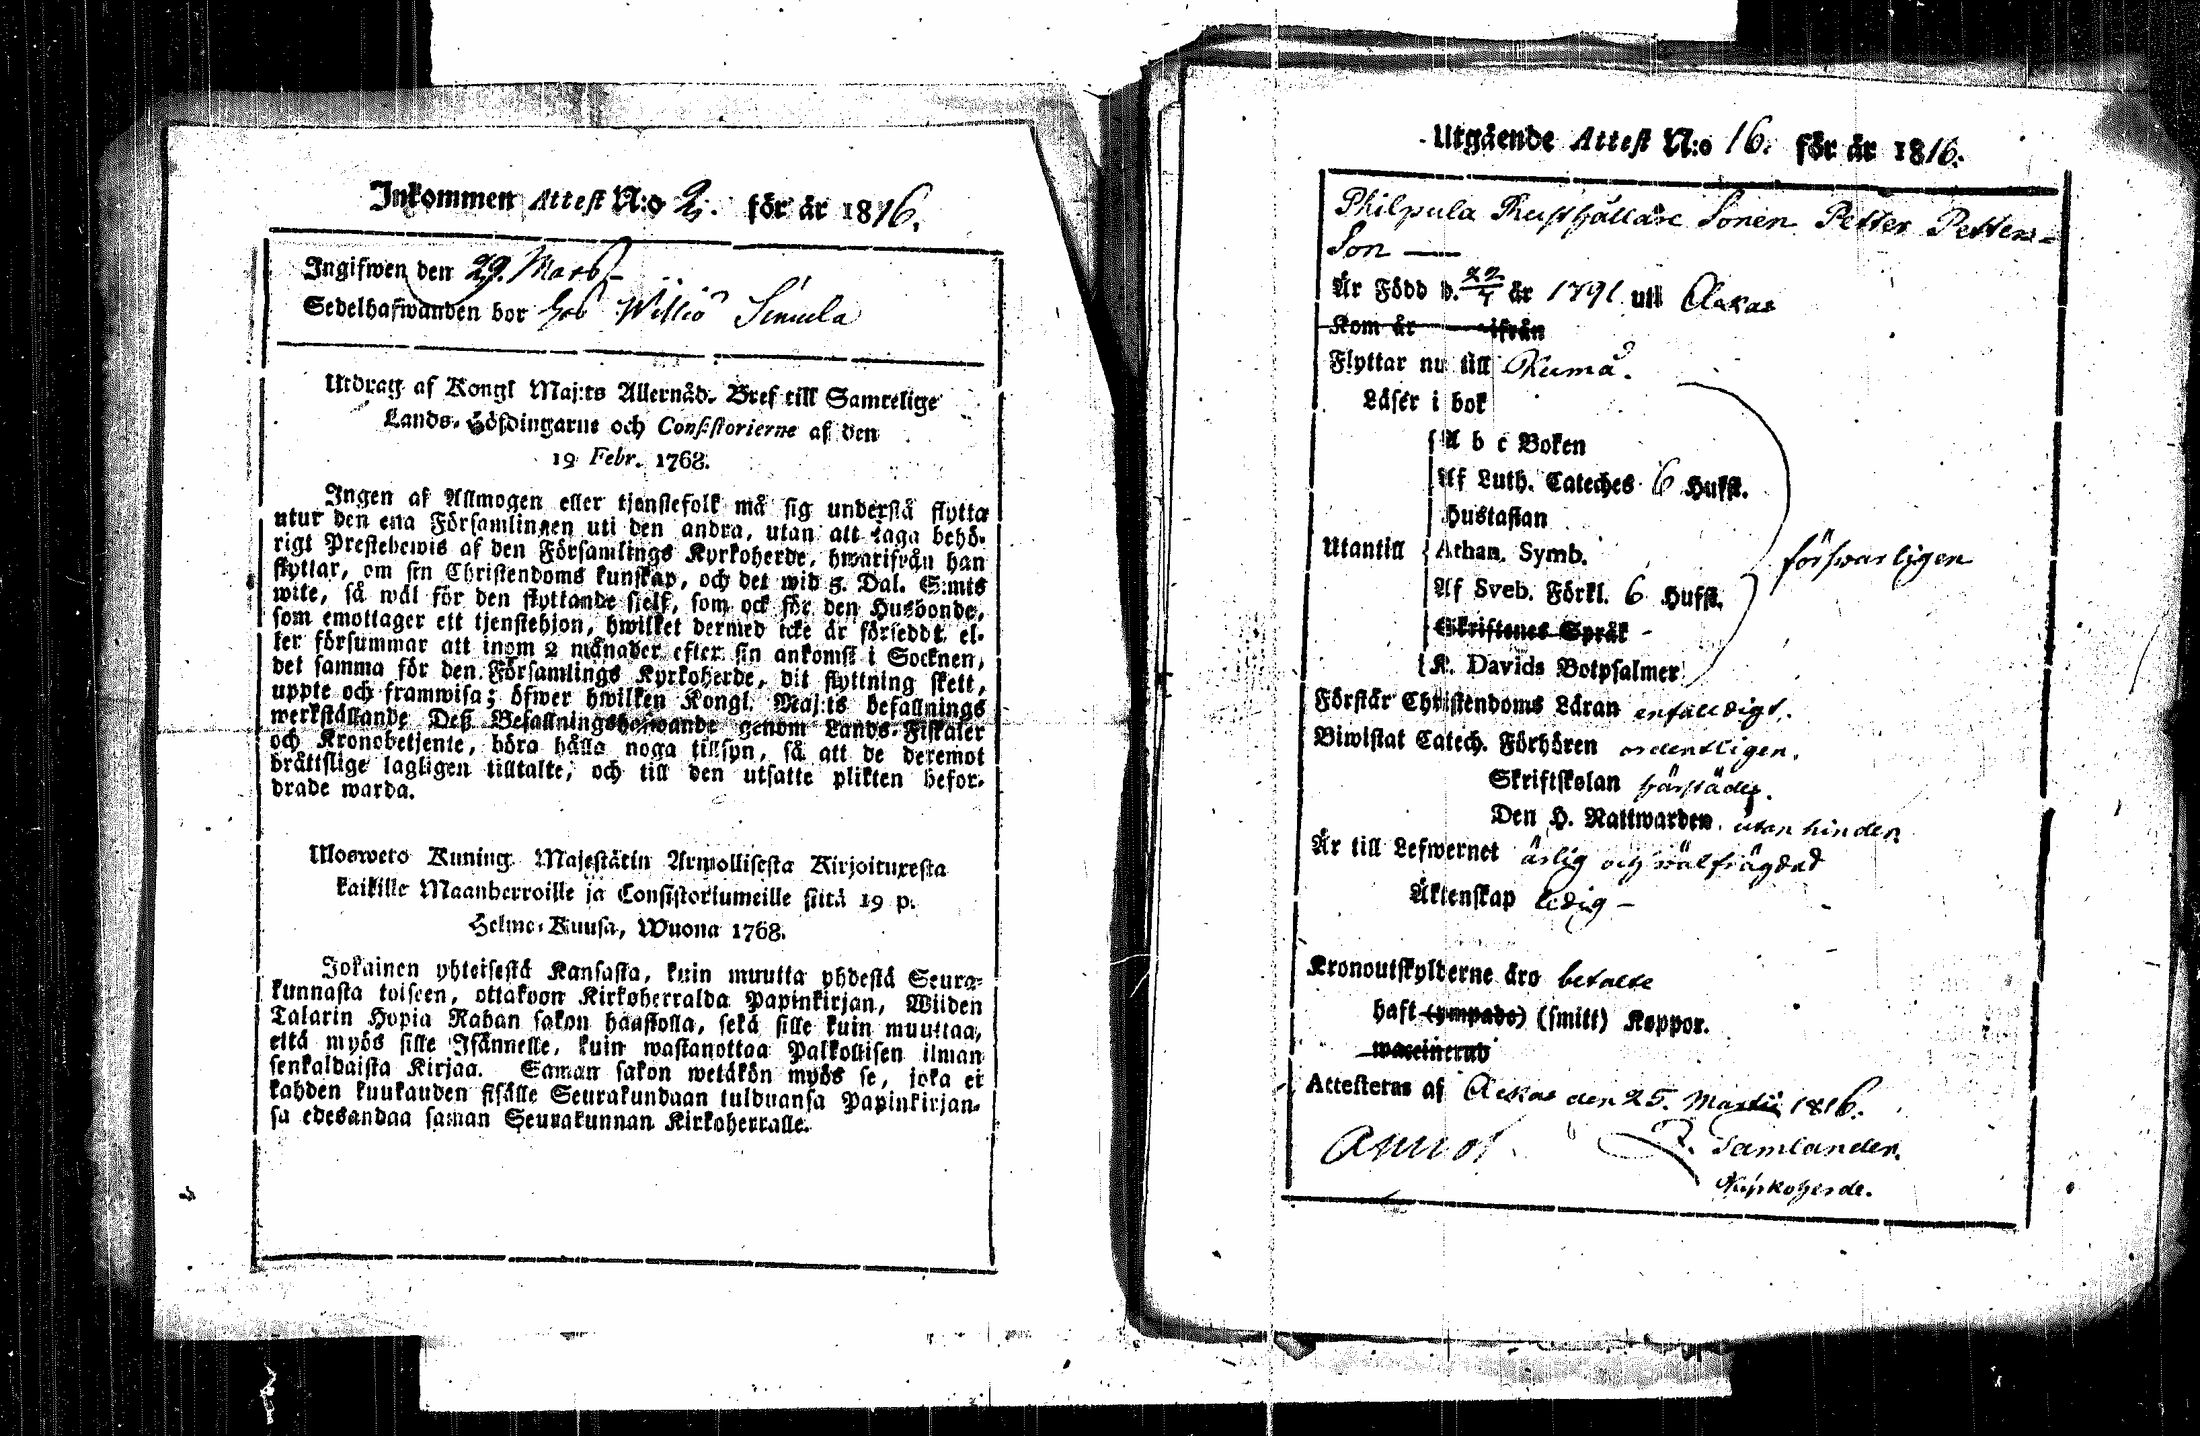 Inkommen Attest N:o 2. för år 1816.
Ingifwen den 29. Mars
Sedelhafwanden bor hos Williö Simula
Utdrag af Kongl Maj:ts Allernåd. Bref till Samtelige
Lands-Höfdingarne och Consistorierne af den
19 Febr. 1768.
Ingen af Allmogen eller tjenstefolk må sig understå flytta
utur den ena Församlingen uti den andra, utan att taga behö-
rigt Prestebewis af den Församlings Kyrkoherde, hwarifrån han
flyttar, om sin Christendoms kunskap, och det wid 5. Dal. S:mts
wite, så wäl för den flyttande sjelf, som ock för den Husbonde,
som emottager ett tjenstehjon, hwilket dermed icke är förseddt, el-
ler försummar att inom 2 månader efter sin ankomst i Socknen,
det samma för den Församlings Kyrkoherde, dit flyttning skett,
uppte och framwisa; öfwer hwilken Kongl. Maj:ts befallnings
werkställande Deß Befallningshafwande genom Lands-Fiskaler
och Kronobetjente, böra hålla noga tillsyn, så att de deremot
brättslige lagligen tilltalte, och till den utsatte plikten befor-
drade warda.
Uloswero Kuning. Majestätin Armollisesta Kirjoituxesta
kaikille Maanherroille ja Consistoriumeille siitä 19 p.
Helme-Kuusa, Wuona 1768.
Jokainen yhteisestä Kansasta, kuin muutta yhdestä Seura-
kunnasta toiseen, ottakoon Kirkoherralda Papinkirjan, Wiiden
Talarin Hopia Rahan sakon haastolla, sekä sille kuin muuttaa,
että myös sille Isännelle, kuin wastanottaa Palkollisen ilman
senkaldaista Kirjaa. Saman sakon wetäkön myös se, joka ei
kahden kuukauden sisälle Seurakundaan tulduansa Papinkirjan-
sa edesandaa saman Seurakunnan Kirkoherralle.
Utgående Attest N:o 16. för år 1816.
Philpula Rusthållare Sonen Petter Petters-
Son
Är Född d. 22/7 år 1791 uti Ackas
Kom år ifrån
Flyttar nu till Rumå.
Läser i bok
A b c Boken
Af Luth. Cateches 6 Hufst.
Hustaflan
Utantill Athan. Symb. förswarligen
Af Sveb. Förkl. 6 Hufst.
Skriftenes Språk
K. Davids Botpsalmer
Förstår Christendoms Läran enfalldigt.
Biwistat Catech. Förhören ordentligen.
Skriftskolan härstädes.
Den H. Nattwarden utan hinder.
Är till Lefwernet ärlig och wälfrägdad
Äktenskap ledig
Kronoutskylderne äro betalte
haft (ympade) (smitt) Koppor.
waccinerad
Attesteras af Ackas den 25. Martii 1816.
Samlander.
Kyrkoherde.